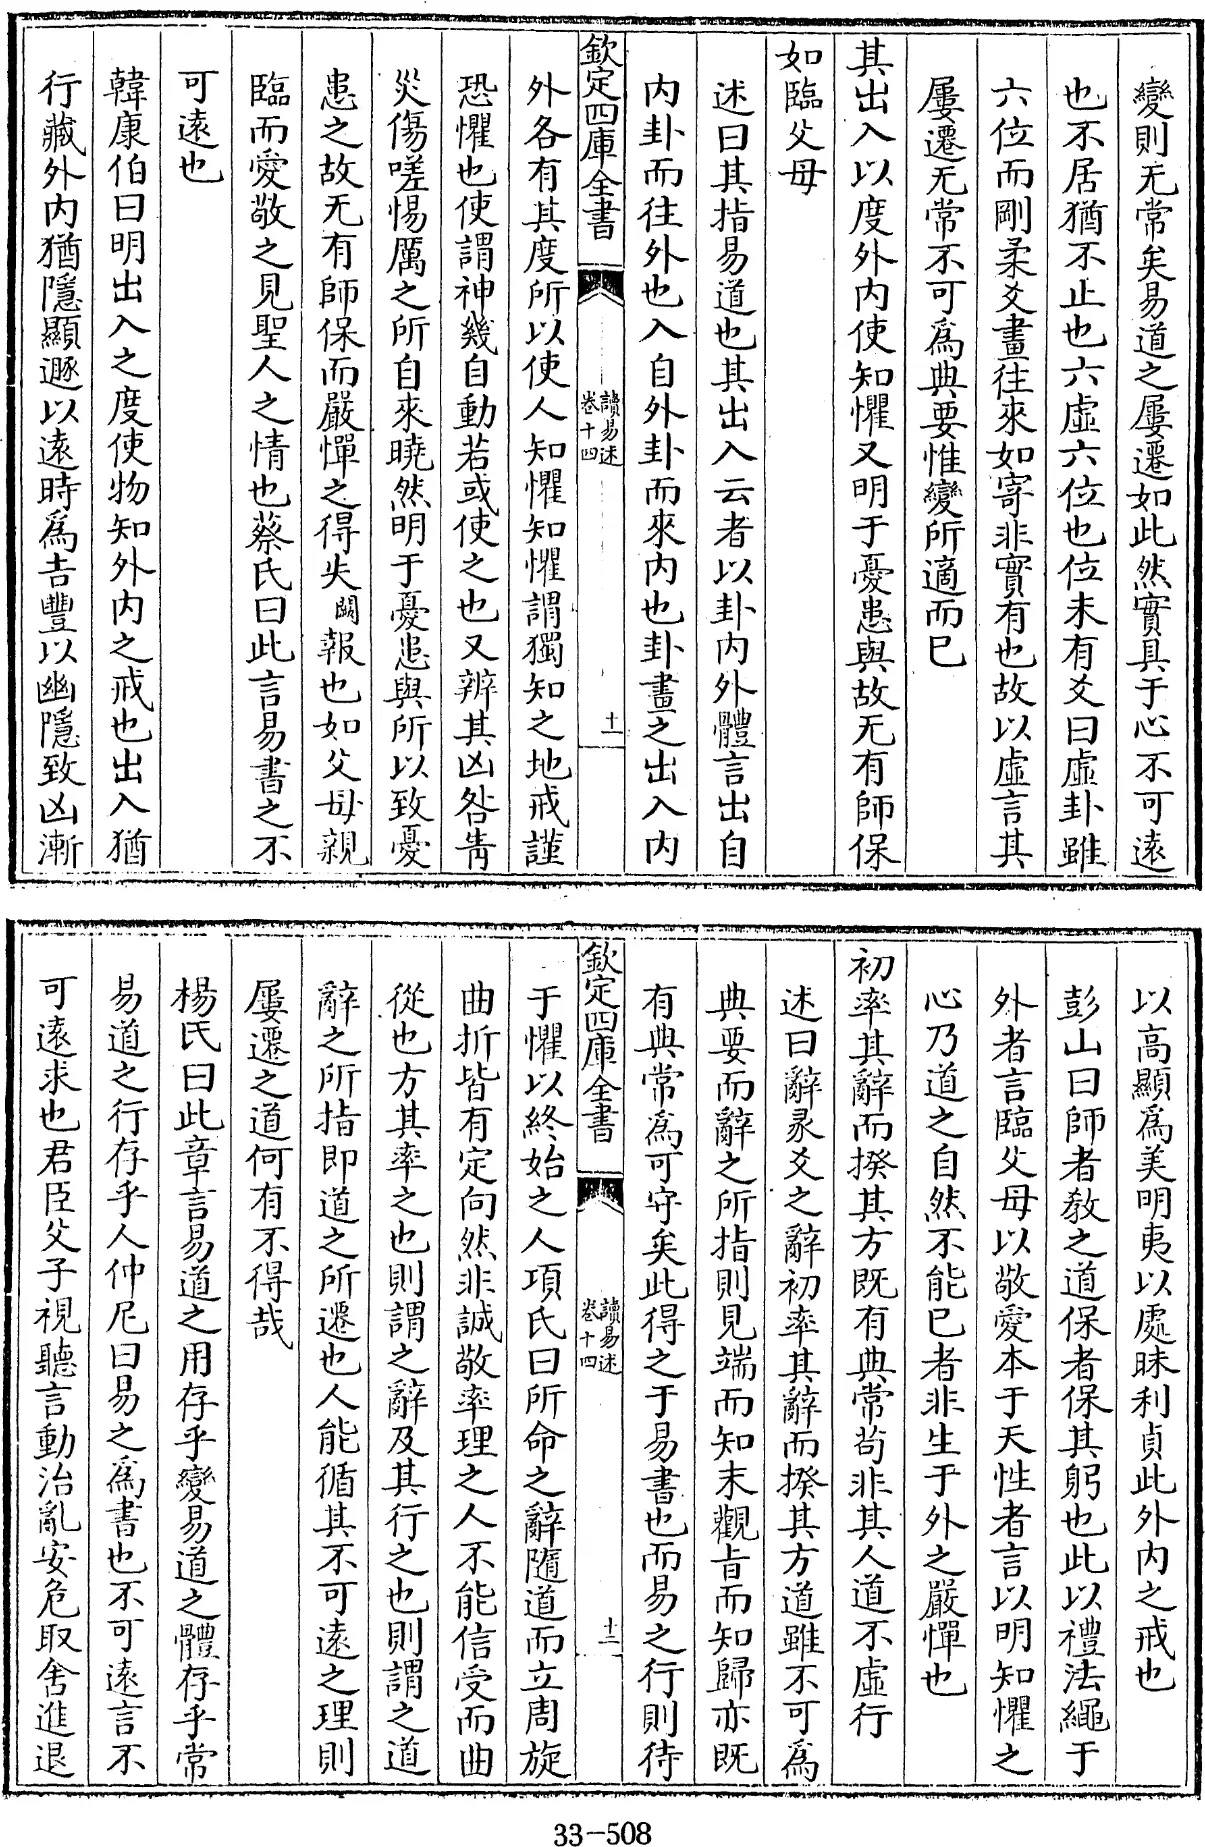 變則无常矣易道之屢遷如此然實具于心不可遠
也不居猶不止也六虛六位也位未有爻曰虛卦雖
六位而剛柔爻畫往來如寄非實有也故以虛言其
屢遷无常不可爲典要惟變所適而已
其出入以度外內使知懼又明于憂患與故无有師保
如臨父母
述曰其指易道也其出入云者以卦內外體言出自
內卦而往外也入自外卦而來內也卦畫之出入內
欽定四庫全書
讀易述
卷十四
十一
外各有其度所以使人知懼知懼謂獨知之地戒謹
恐懼也使謂神幾自動若或使之也又辨其凶咎眚
災傷嗟惕厲之所自來曉然明于憂患與所以致憂
患之故无有師保而嚴憚之得失闕報也如父母親
臨而愛敬之見聖人之情也蔡氏曰此言易書之不
可遠也
韓康伯曰明出入之度使物知外內之戒也出入猶
行藏外內猶隱顯遯以遠時爲吉豐以幽隱致凶漸
以高顯爲美明夷以處昧利貞此外內之戒也
彭山曰師者教之道保者保其躬也此以禮法繩于
外者言臨父母以敬愛本于天性者言以明知懼之
心乃道之自然不能已者非生于外之嚴憚也
初率其辭而揆其方既有典常苟非其人道不虛行
述曰辭彖爻之辭初率其辭而揆其方道雖不可爲
典要而辭之所指則見端而知末觀旨而知歸亦既
有典常爲可守矣此得之于易書也而易之行則待
欽定四庫全書
讀易述
卷十四
十二
于懼以終始之人項氏曰所命之辭隨道而立周旋
曲折皆有定向然非誠敬率理之人不能信受而曲
從也方其率之也則謂之辭及其行之也則謂之道
辭之所指即道之所遷也人能循其不可遠之理則
屢遷之道何有不得哉
楊氏曰此章言易道之用存乎變易道之體存乎常
易道之行存乎人仲尼曰易之爲書也不可遠言不
可遠求也君臣父子視聽言動治亂安危取舍進退
33-508